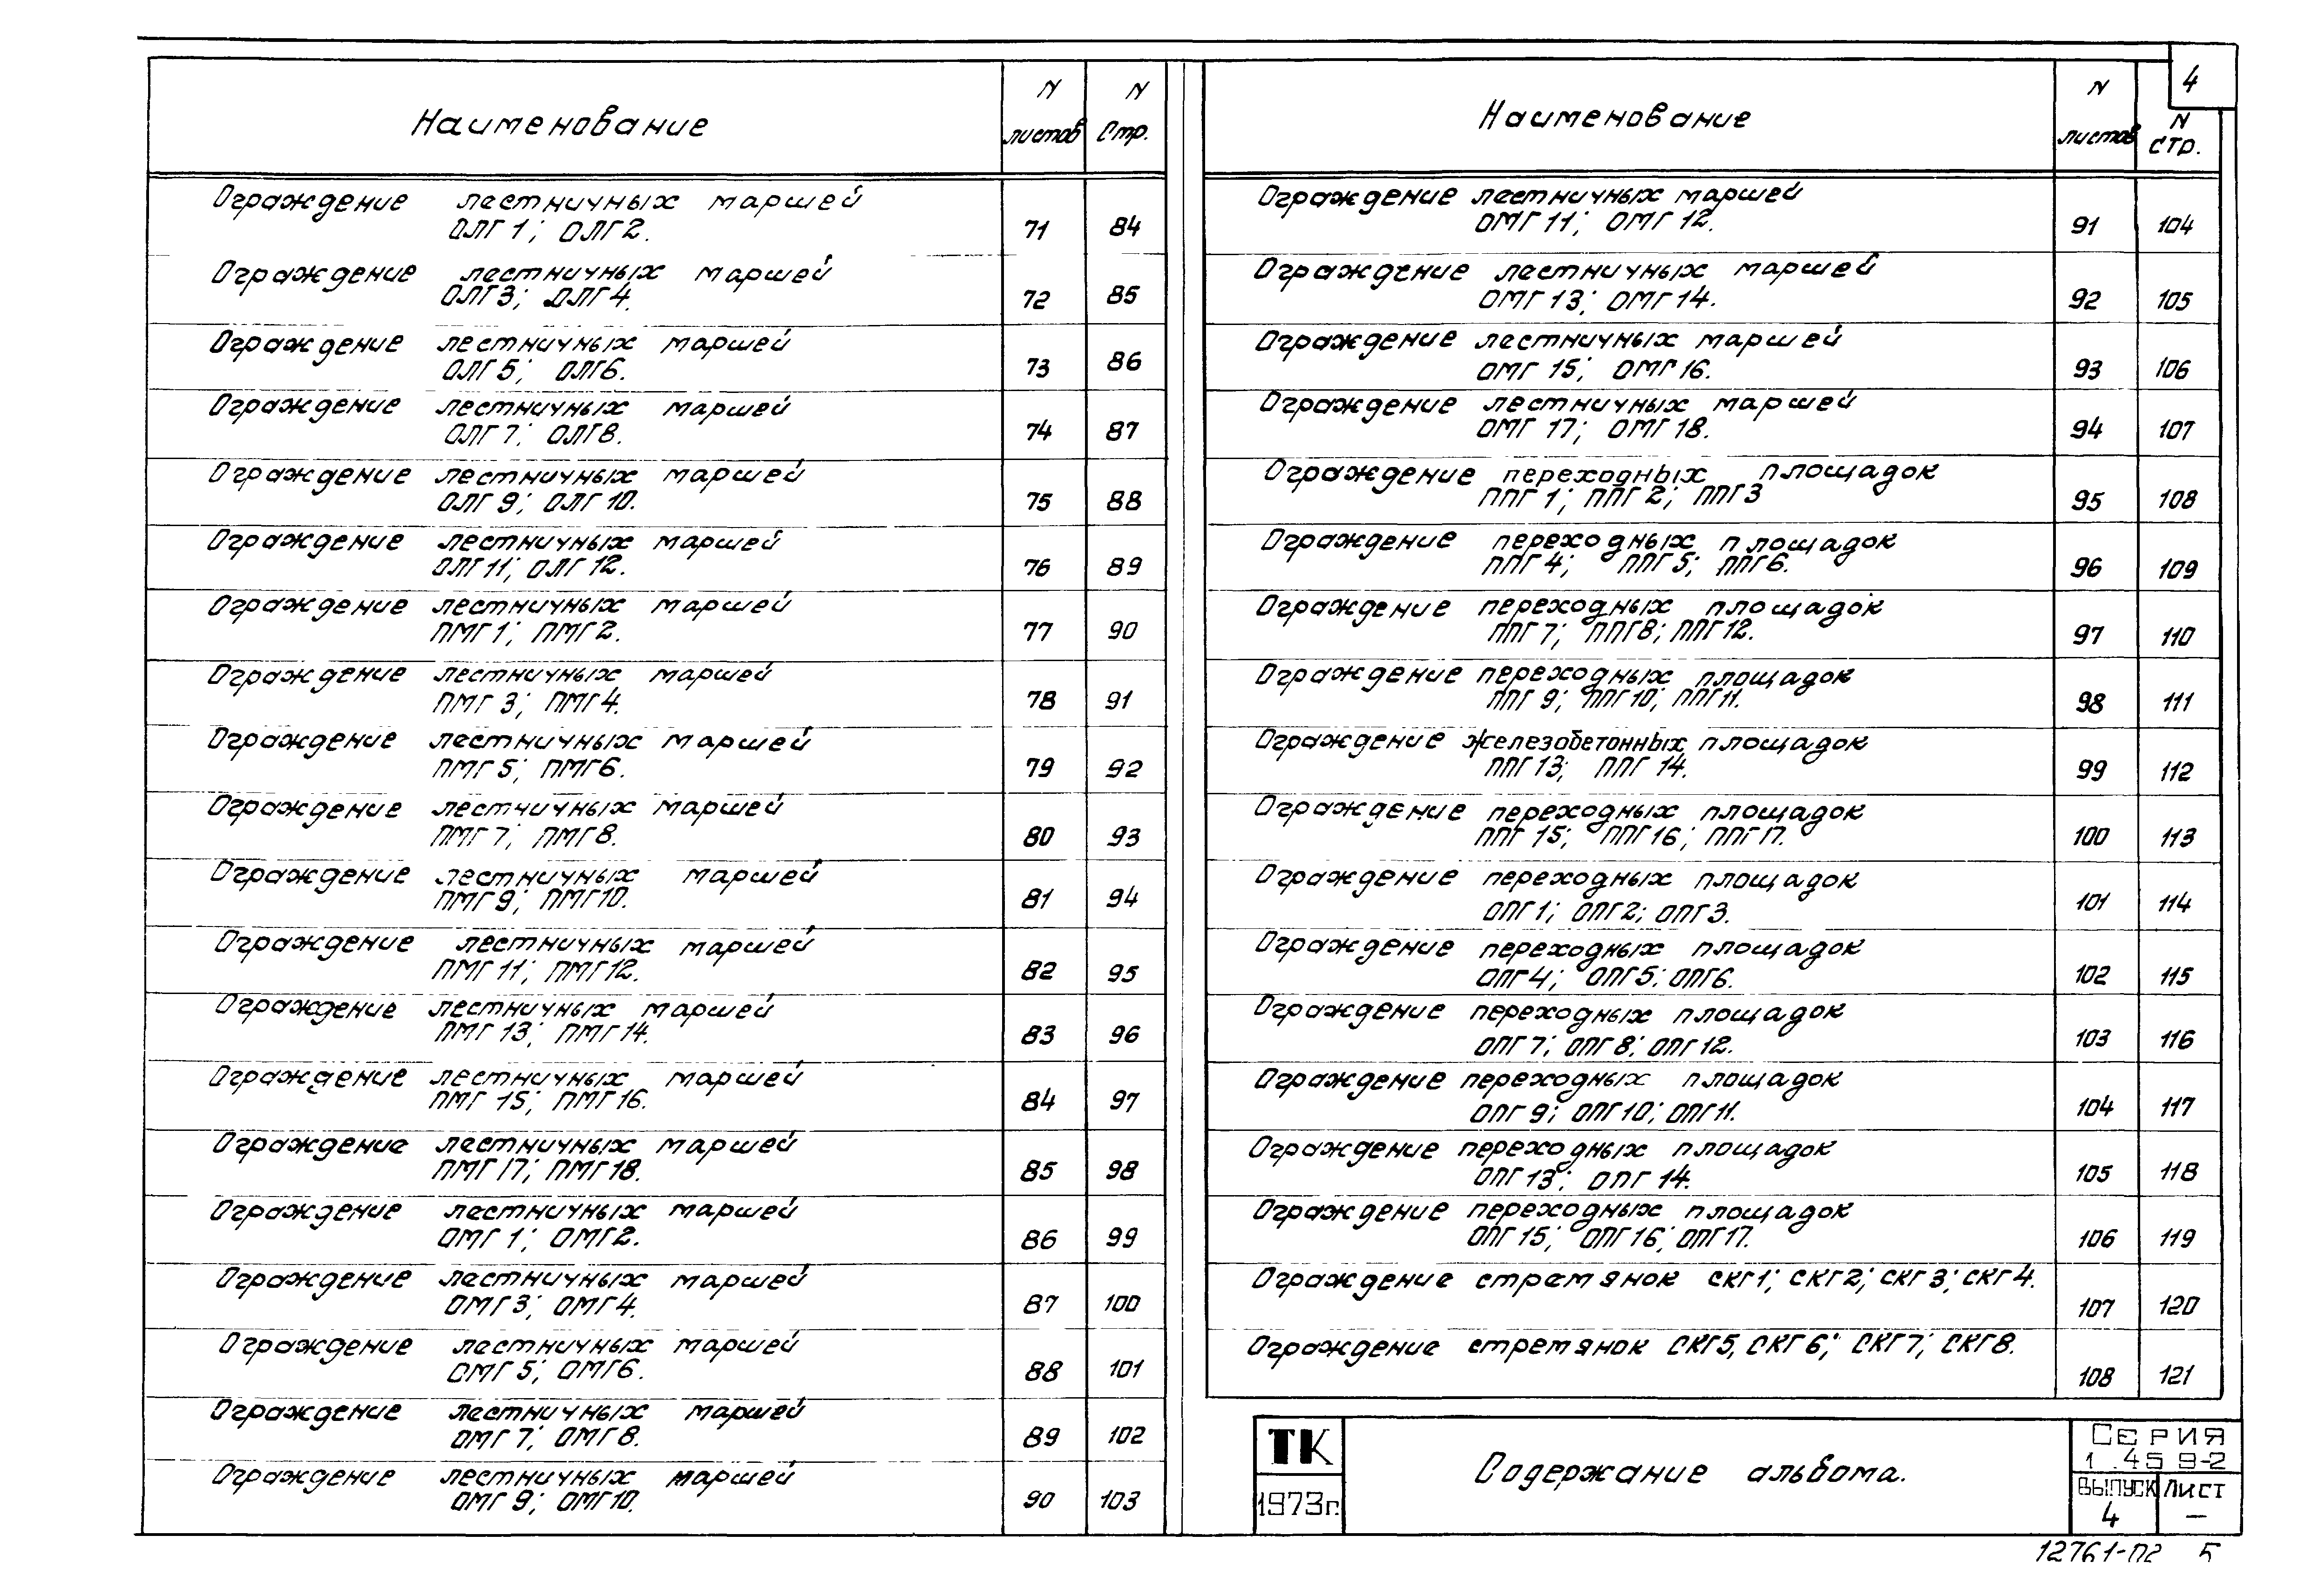 4
Наименование N листов N Стр.
Ограждение лестничных маршей
ОЛГ 1; ОЛГ 2. 71 84
Ограждение лестничных маршей
ОЛГ 3; ОЛГ 4. 72 85
Ограждение лестничных маршей
ОЛГ 5; ОЛГ 6. 73 86
Ограждение лестничных маршей
ОЛГ 7; ОЛГ 8. 74 87
Ограждение лестничных маршей
ОЛГ 9; ОЛГ 10. 75 88
Ограждение лестничных маршей
ОЛГ 11; ОЛГ 12. 76 89
Ограждение лестничных маршей
ПМГ 1; ПМГ 2. 77 90
Ограждение лестничных маршей
ПМГ 3; ПМГ 4. 78 91
Ограждение лестничных маршей
ПМГ 5; ПМГ 6. 79 92
Ограждение лестничных маршей
ПМГ 7; ПМГ 8. 80 93
Ограждение лестничных маршей
ПМГ 9; ПМГ 10. 81 94
Ограждение лестничных маршей
ПМГ 11; ПМГ 12. 82 95
Ограждение лестничных маршей
ПМГ 13; ПМГ 14. 83 96
Ограждение лестничных маршей
ПМГ 15; ПМГ 16. 84 97
Ограждение лестничных маршей
ПМГ 17; ПМГ 18. 85 98
Ограждение лестничных маршей
ОМГ 1; ОМГ 2. 86 99
Ограждение лестничных маршей
ОМГ 3; ОМГ 4. 87 100
Ограждение лестничных маршей
ОМГ 5; ОМГ 6. 88 101
Ограждение лестничных маршей
ОМГ 7; ОМГ 8. 89 102
Ограждение лестничных маршей
ОМГ 9; ОМГ 10. 90 103
Наименование N листов N СТР.
Ограждение лестничных маршей
ОМГ 11; ОМГ 12. 91 104
Ограждение лестничных маршей
ОМГ 13; ОМГ 14. 92 105
Ограждение лестничных маршей
ОМГ 15; ОМГ 16. 93 106
Ограждение лестничных маршей
ОМГ 17; ОМГ 18. 94 107
Ограждение переходных площадок
ППГ 1; ППГ 2; ППГ 3 95 108
Ограждение переходных площадок
ППГ 4; ППГ 5; ППГ 6. 96 109
Ограждение переходных площадок
ППГ 7; ППГ 8; ППГ 12. 97 110
Ограждение переходных площадок
ППГ 9; ППГ 10; ППГ 11. 98 111
Ограждение железобетонных площадок
ППГ 13; ППГ 14. 99 112
Ограждение переходных площадок
ППГ 15; ППГ 16; ППГ 17. 100 113
Ограждение переходных площадок
ОПГ 1; ОПГ 2; ОПГ 3. 101 114
Ограждение переходных площадок
ОПГ 4; ОПГ 5; ОПГ 6. 102 115
Ограждение переходных площадок
ОПГ 7; ОПГ 8; ОПГ 12. 103 116
Ограждение переходных площадок
ОПГ 9; ОПГ 10; ОПГ 11. 104 117
Ограждение переходных площадок
ОПГ 13; ОПГ 14. 105 118
Ограждение переходных площадок
ОПГ 15; ОПГ 16; ОПГ 17. 106 119
Ограждение стремянок СКГ 1; СКГ 2; СКГ 3; СКГ 4.
107 120
Ограждение стремянок СКГ 5, СКГ 6; СКГ 7; СКГ 8.
108 121
ТК
1973г.
Содержание альбома.
СЕРИЯ
1.459-2
ВЫПУСК Лист
4 —
12761-02 5